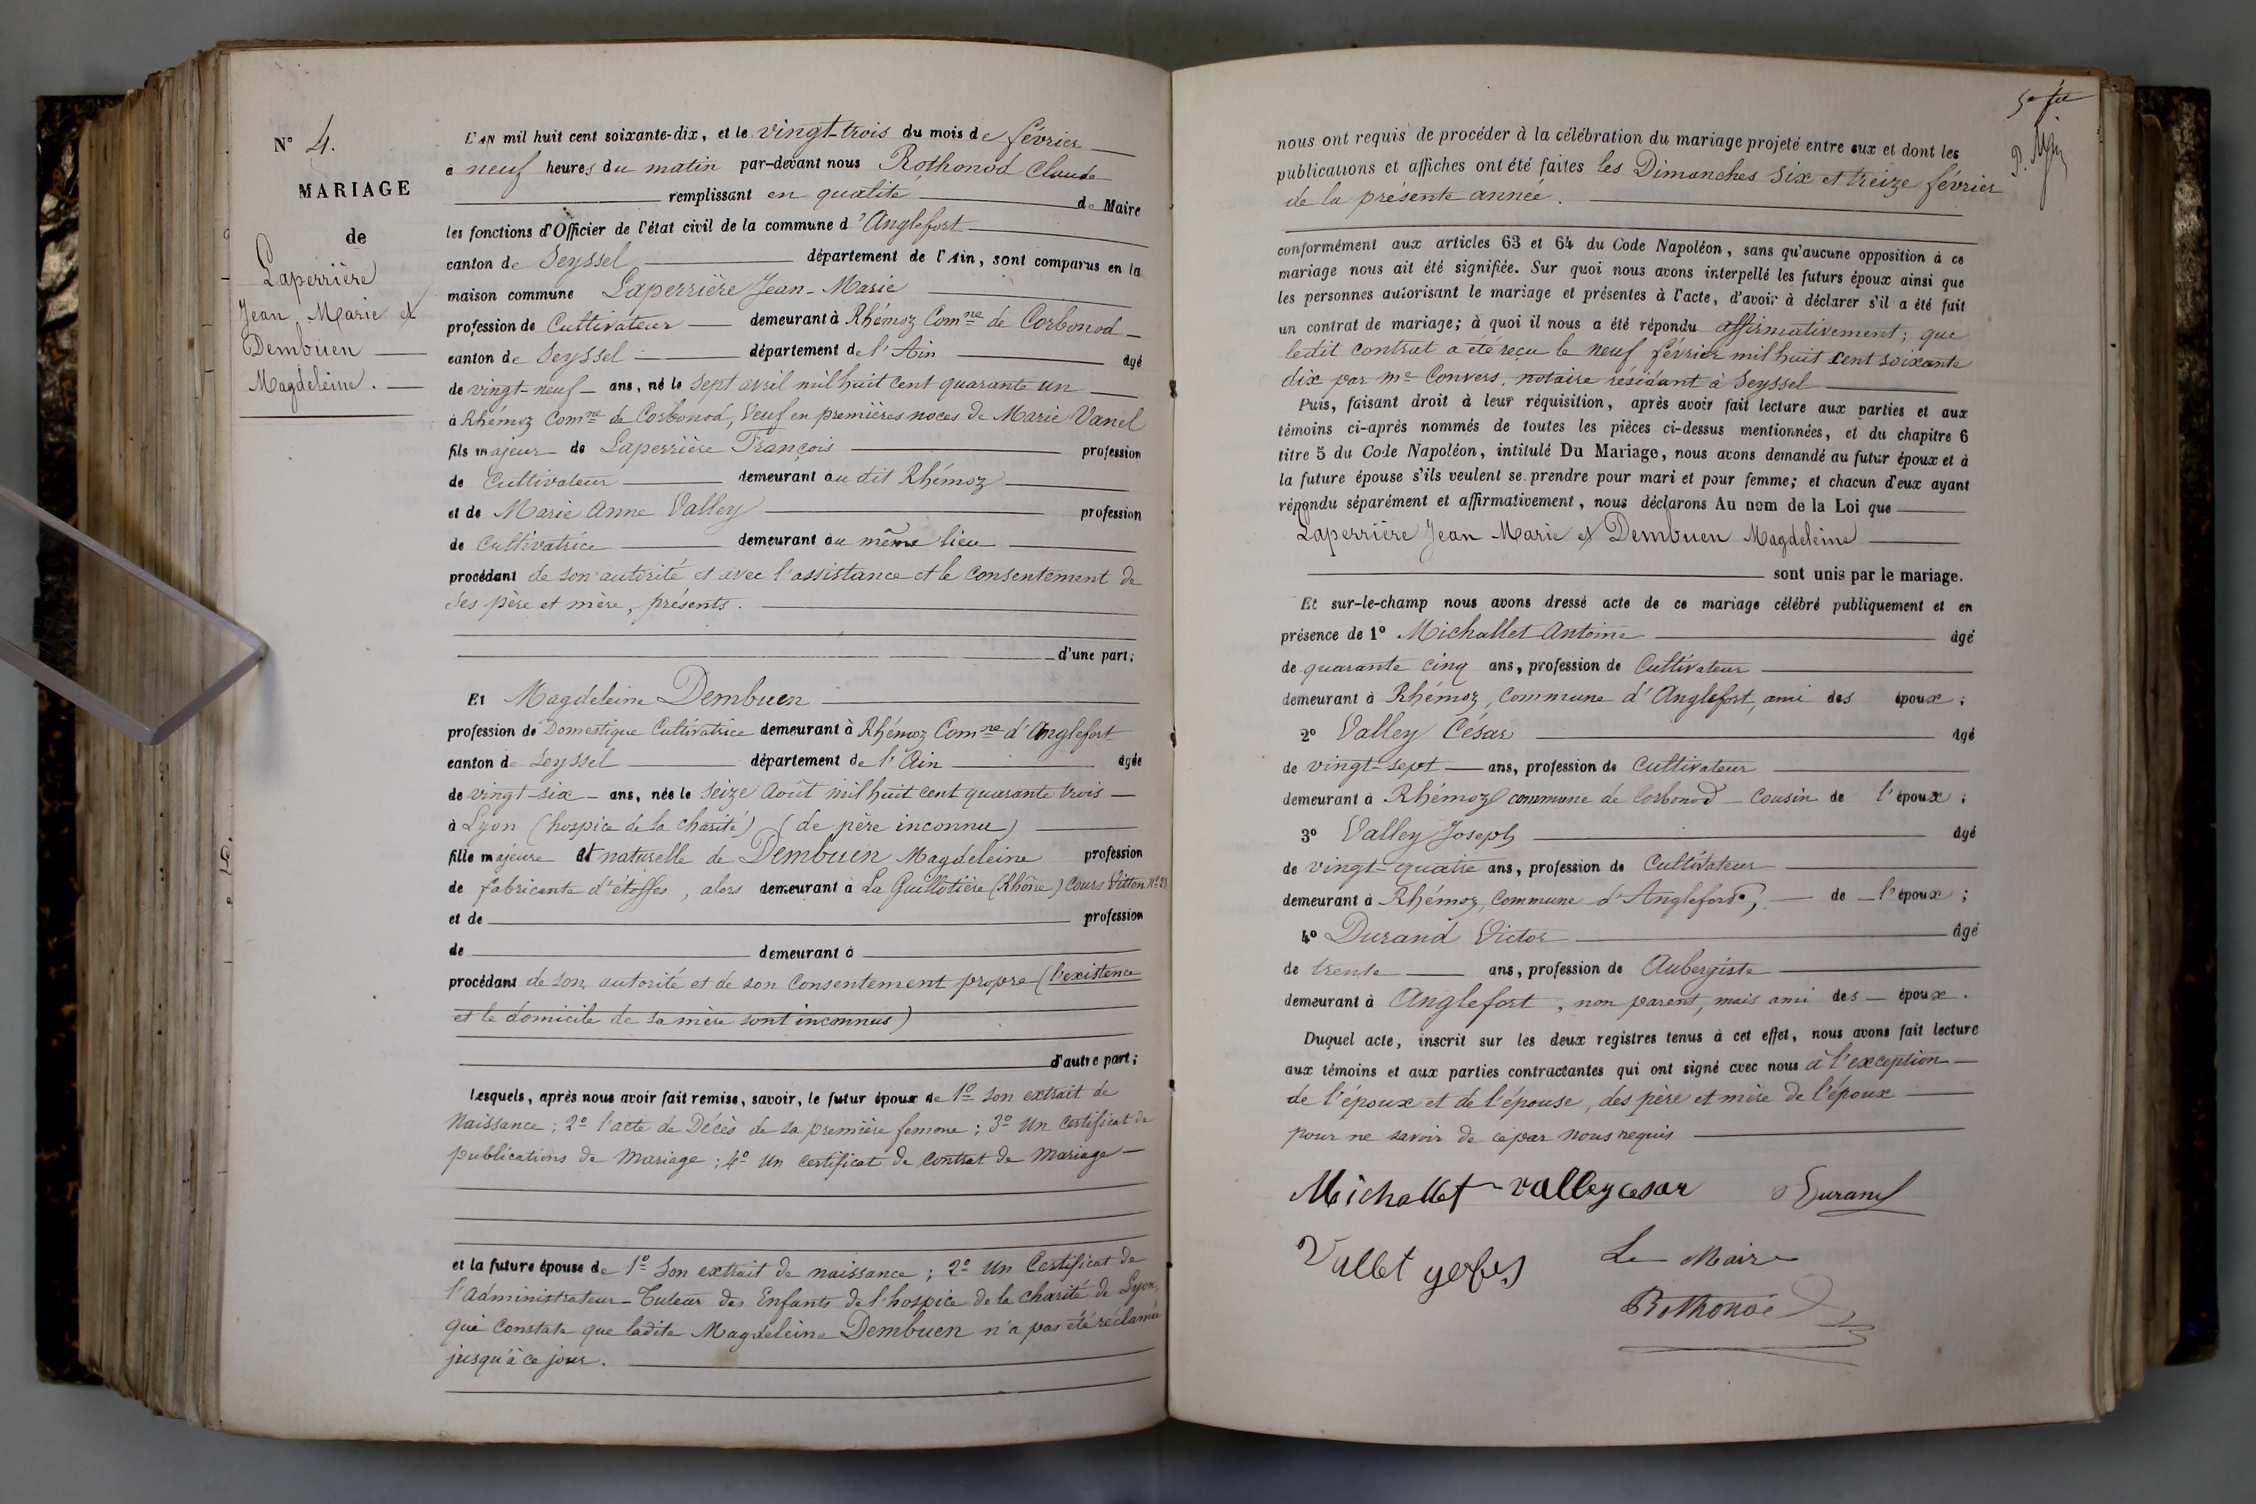 N° 4.
MARIAGE
de
Laperrière
Jean Marie et
Dembuen
Magdeleine.
L'AN mil huit cent soixante-dix, et le vingt-trois du mois de février
à neuf heures du matin par-devant nous Rothonod Claude
remplissant en qualité de Maire
les fonctions d'Officier de l'état civil de la commune d'Anglefort
canton de Seyssel département de l'Ain, sont comparus en la
maison commune Laperrière Jean-Marie
profession de Cultivateur demeurant à Rhémoz Comne de Corbonod
canton de Seyssel département de l'Ain âgé
de vingt-neuf ans, né le sept avril mil huit cent quarante un
à Rhémoz Comne de Corbonod, Veuf en premières noces de Marie Vanel
fils majeur de Laperrière François profession
de Cultivateur demeurant au dit Rhémoz
et de Marie Anne Valley profession
de Cultivatrice demeurant au même lieu
procédant de son autorité et avec l'assistance et le consentement de
ses père et mère, présents.
d'une part;
Et Magdeleine Dembuen
profession de Domestique Cultivatrice demeurant à Rhémoz Comne d'Anglefort
canton de Seyssel département de l'Ain âgée
de vingt-six ans, née le seize Août mil huit cent quarante trois
à Lyon (hospice de la charité) (de père inconnu)
fille majeure et naturelle de Dembuen Magdeleine profession
de fabricante d'étoffes, alors demeurant à La Guillotière (Rhône) Cours Vitton
et de profession
de demeurant à
procédant de son autorité et de son consentement propre (l'existence
et le domicile de sa mère sont inconnus)
d'autre part;
Lesquels, après nous avoir fait remise, savoir, le futur époux de 1° son extrait de
Naissance; 2° l'acte de Décès de sa première femme; 3° Un certificat de
publications de Mariage; 4° Un certificat de contrat de Mariage
et la future épouse de 1° Son extrait de naissance; 2° Un Certificat de
l'Administrateur-Tuteur des Enfants de l'hospice de la charité de Lyon,
qui Constate que ladite Magdeleine Dembuen n'a pas été réclamée
jusqu'à ce jour.
nous ont requis de procéder à la célébration du mariage projeté entre eux et dont les
publications et affiches ont été faites les Dimanches Six et treize février
de la présente année.
conformément aux articles 63 et 64 du Code Napoléon, sans qu'aucune opposition à ce
mariage nous ait été signifiée. Sur quoi nous avons interpellé les futurs époux ainsi que
les personnes autorisant le mariage et présentes à l'acte, d'avoir à déclarer s'il a été fait
un contrat de mariage; à quoi il nous a été répondu affirmativement; que
ledit contrat a été reçu le neuf février mil huit cent soixante
dix par Me Convers, notaire résidant à Seyssel
Puis, faisant droit à leur réquisition, après avoir fait lecture aux parties et aux
témoins ci-après nommés de toutes les pièces ci-dessus mentionnées, et du chapitre 6
titre 5 du Code Napoléon, intitulé Du Mariage, nous avons demandé au futur époux et à
la future épouse s'ils veulent se prendre pour mari et pour femme; et chacun d'eux ayant
répondu séparément et affirmativement, nous déclarons Au nom de la Loi que
Laperrière Jean Marie et Dembuen Magdeleine
sont unis par le mariage.
Et sur-le-champ nous avons dressé acte de ce mariage célébré publiquement et en
présence de 1° Michallet Antoine âgé
de quarante cinq ans, profession de Cultivateur
demeurant à Rhémoz, commune d'Anglefort, ami des époux;
2° Valley César âgé
de vingt-sept ans, profession de Cultivateur
demeurant à Rhémoz commune de Corbonod Cousin de l'époux;
3° Valley Joseph âgé
de vingt-quatre ans, profession de Cultivateur
demeurant à Rhémoz, commune d'Anglefort, de l'époux;
4° Durand Victor âgé
de trente ans, profession de Aubergiste
demeurant à Anglefort, non parent, mais ami des époux.
Duquel acte, inscrit sur les deux registres tenus à cet effet, nous avons fait lecture
aux témoins et aux parties contractantes qui ont signé avec nous à l'exception
de l'époux et de l'épouse, des père et mère de l'époux
pour ne savoir de ce par nous requis
Michallet Valley cesar Durand
Vallet
Le Maire
Rothonod